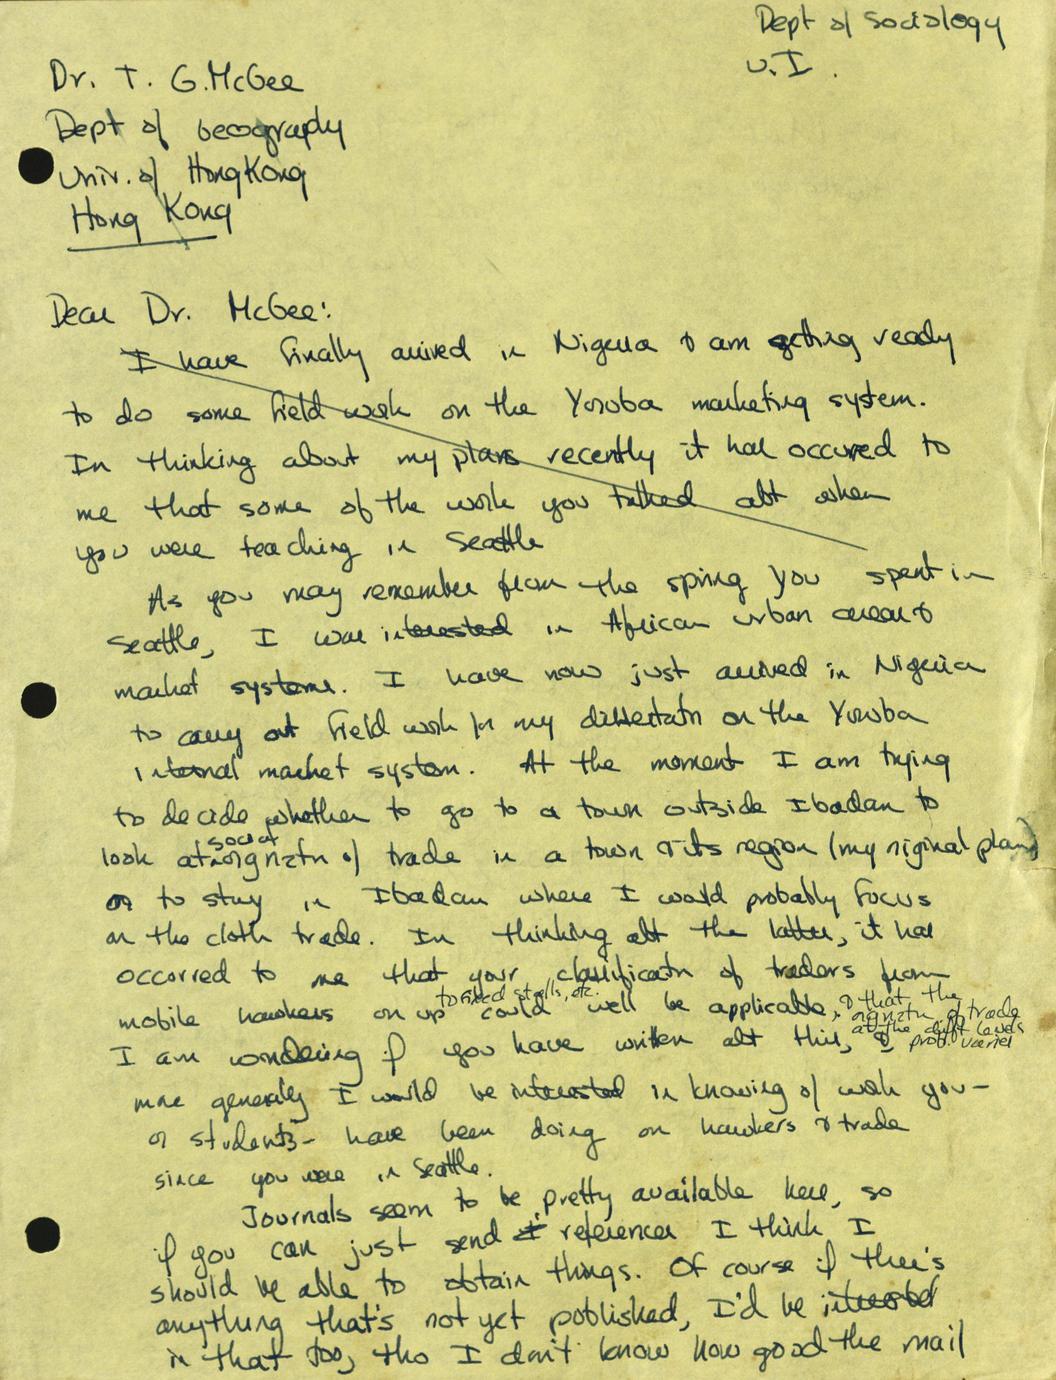 Dept of Sociology
U.I.
Dr. T. G. McGee
Dept of Geography
Univ. of Hong Kong
Hong Kong
Dear Dr. McGee:
I have finally arrived in Nigeria & am getting ready
to do some field work on the Yoruba marketing system.
In thinking about my plans recently it has occured to
me that some of the work you talked abt when
you were teaching in Seattle
As you may remember from the spring you spent in
Seattle, I was interested in African urban areas &
market systems. I have now just arrived in Nigeria
to carry out field work for my dissertatn on the Yoruba
internal market system. At the moment I am trying
to decide whether to go to a town outside Ibadan to
look at social orgnztn of trade in a town & its region (my riginal plan)
or to stay in Ibadan where I would probably focus
on the cloth trade. In thinking abt the latter, it has
occorred to me that your classificatn of traders from
mobile hawkers on up to fixed stalls, etc. could well be applicable, & that the orgnztn of trade at the diff levels prob. varies
I am wondering if you have written abt this, &,
more generally I would be interested in knowing of work you-
or students- have been doing on hawkers & trade
since you were in Seattle.
Journals seem to be pretty available here, so
if you can just send references I think I
should be able to obtain things. Of course if there's
anything that's not yet published, I'd be interested
in that too, tho I don't know how good the mail